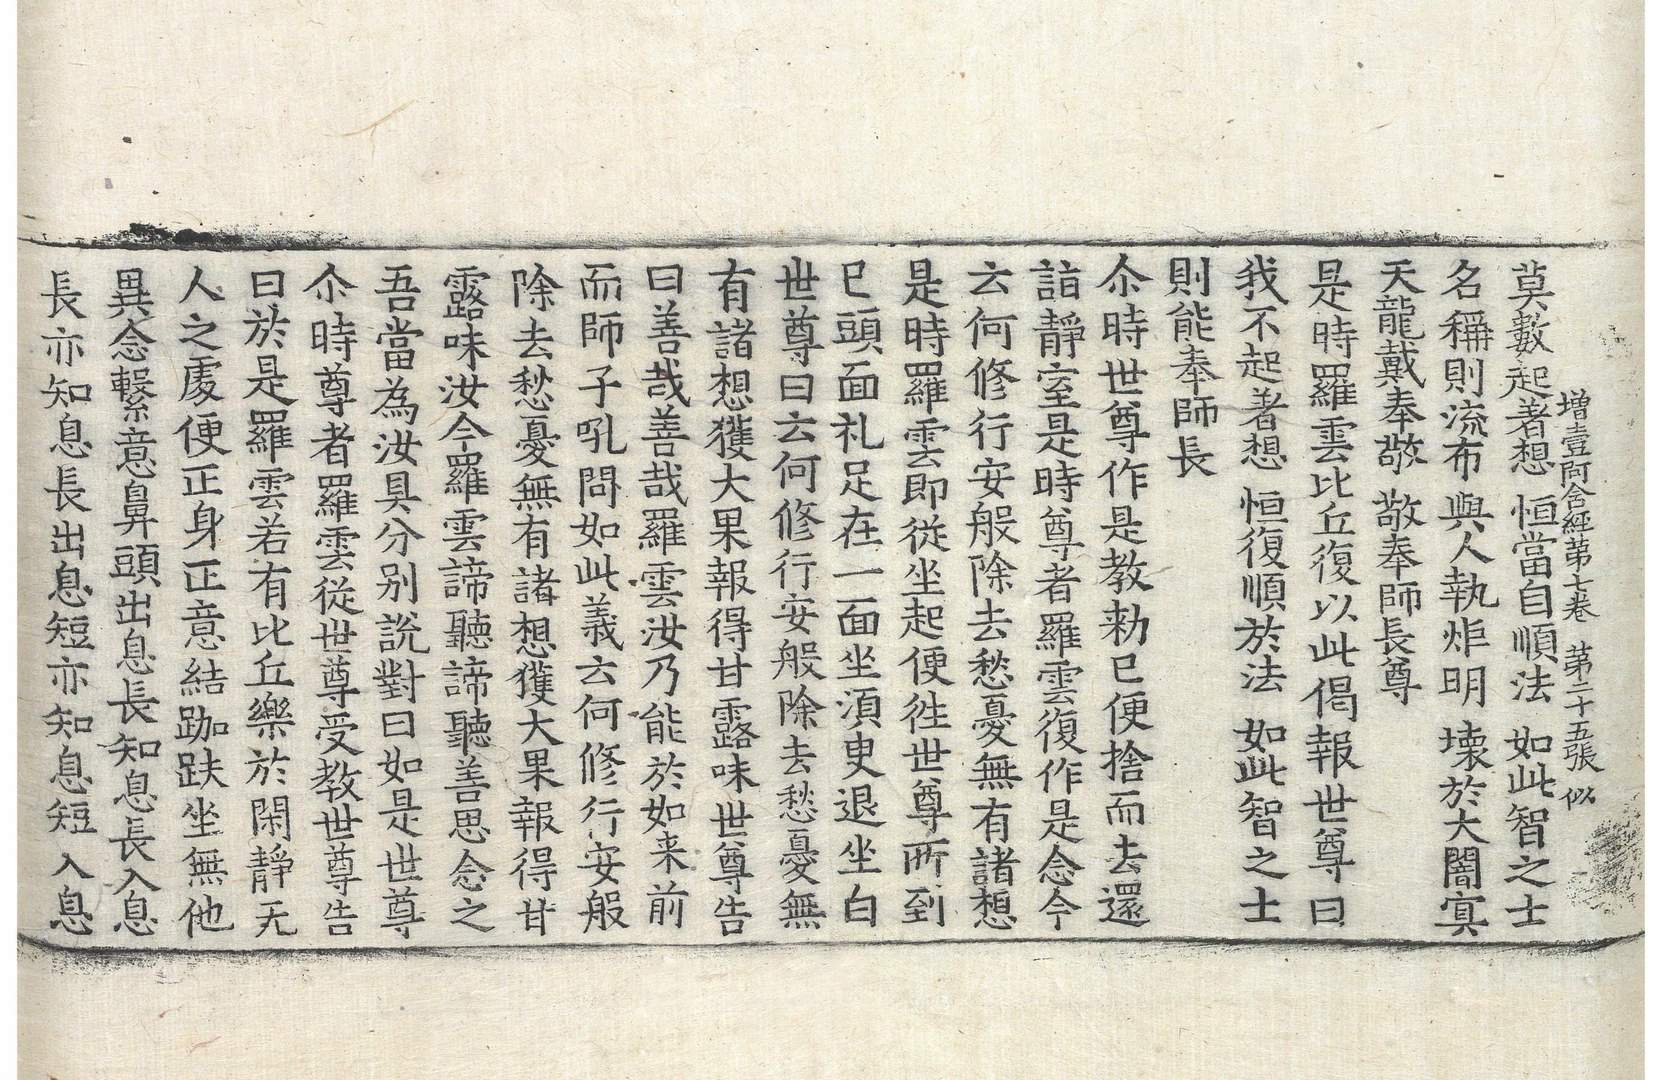 增壹阿含經苐七卷 苐二十五張 似
莫數起著想 恒當自順法 如此智之士
名稱則流布 與人執炬明 壞於大闇㝠
天龍戴奉敬 敬奉師長尊
是時羅雲比丘復以此偈報世尊曰
我不起著想 恒復順於法 如此智之士
則能奉師長
尒時世尊作是教勑已便捨而去還
詣靜室是時尊者羅雲復作是念今
云何修行安般除去愁憂無有諸想
是時羅雲即從坐起便徃世尊所到
已頭面礼足在一面坐湏臾退坐白
世尊曰云何修行安般除去愁憂無
有諸想獲大果報得甘露味世尊告
曰善哉善哉羅雲汝乃能於如来前
而師子吼問如此義云何修行安般
除去愁憂無有諸想獲大果報得甘
露味汝今羅雲諦聽諦聽善思念之
吾當為汝具分别說對曰如是世尊
尒時尊者羅雲從世尊受教世尊告
曰於是羅雲若有比丘樂於閑靜无
人之處便正身正意結跏趺坐無他
異念繫意鼻頭出息長知息長入息
長亦知息長出息短亦知息短入息